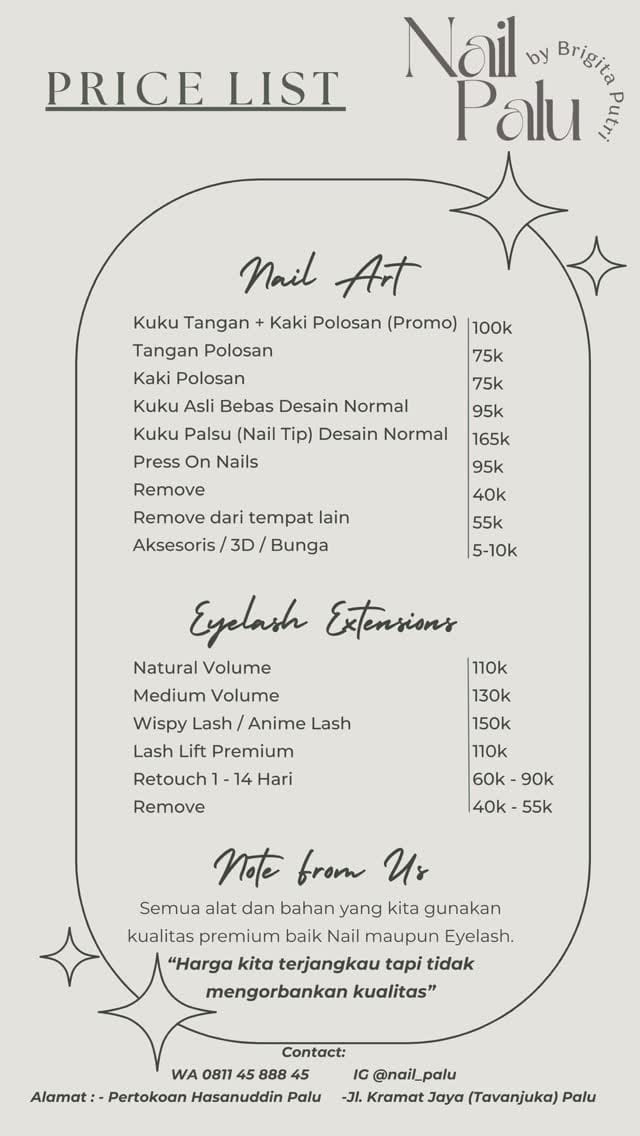 PRICE LIST
Nail Palu
by Brigita Putri
Nail Art
Kuku Tangan + Kaki Polosan (Promo) 100k
Tangan Polosan 75k
Kaki Polosan 75k
Kuku Asli Bebas Desain Normal 95k
Kuku Palsu (Nail Tip) Desain Normal 165k
Press On Nails 95k
Remove 40k
Remove dari tempat lain 55k
Aksesoris / 3D / Bunga 5-10k
Eyelash Extensions
Natural Volume 110k
Medium Volume 130k
Wispy Lash / Anime Lash 150k
Lash Lift Premium 110k
Retouch 1 - 14 Hari 60k - 90k
Remove 40k - 55k
Note from Us
Semua alat dan bahan yang kita gunakan
kualitas premium baik Nail maupun Eyelash.
“Harga kita terjangkau tapi tidak
mengorbankan kualitas”
Contact:
WA 0811 45 888 45 IG @nail_palu
Alamat : - Pertokoan Hasanuddin Palu -Jl. Kramat Jaya (Tavanjuka) Palu